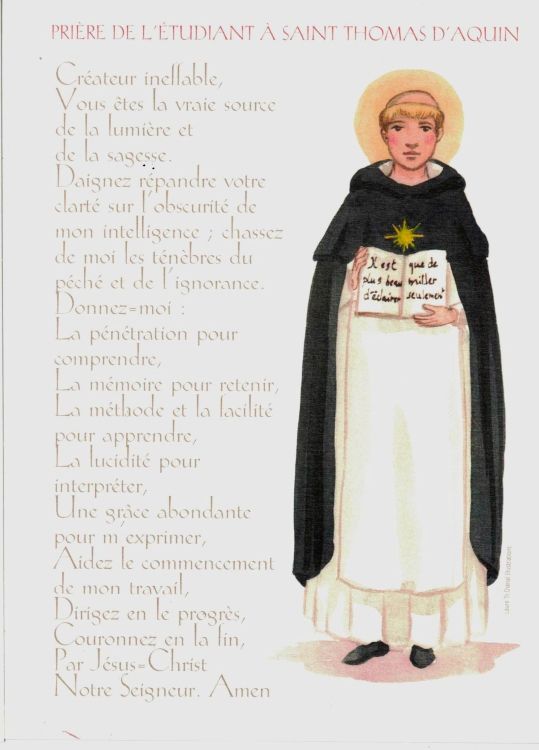 PRIÈRE DE L'ÉTUDIANT À SAINT THOMAS D'AQUIN
Créateur ineffable,
Vous êtes la vraie source
de la lumière et
de la sagesse.
Daignez répandre votre
clarté sur l'obscurité de
mon intelligence ; chassez
de moi les ténèbres du
péché et de l'ignorance.
Donnez=moi :
La pénétration pour
comprendre,
La mémoire pour retenir,
La méthode et la facilité
pour apprendre,
La lucidité pour
interpréter,
Une grâce abondante
pour m'exprimer,
Aidez le commencement
de mon travail,
Dirigez en le progrès,
Couronnez en la fin,
Par Jésus=Christ
Notre Seigneur. Amen
Il est
plus beau
d'éclairer
que de
briller
seulement